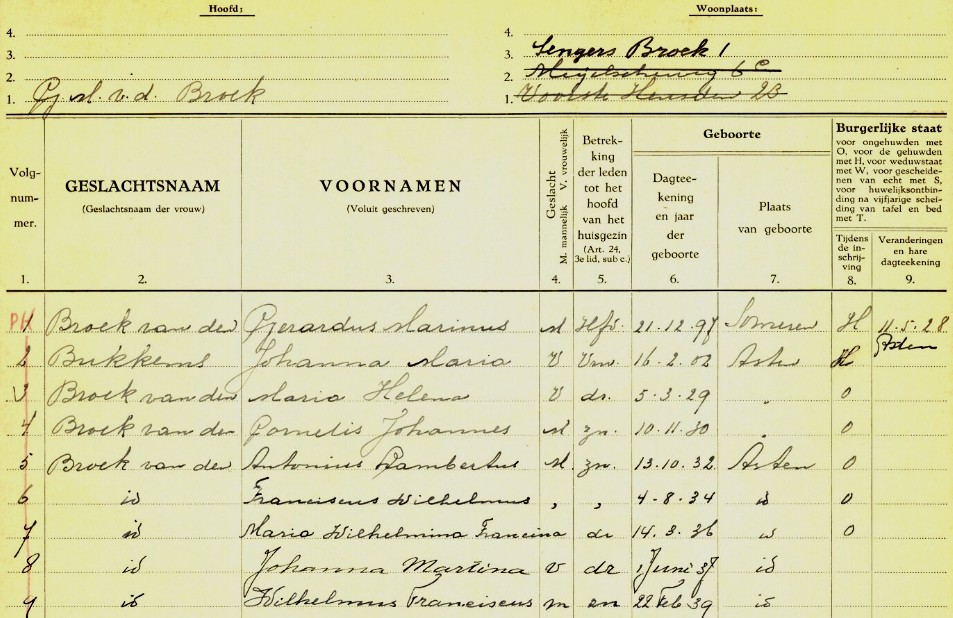 Hoofd: Woonplaats:
4. 4.
3. 3. Sengers Broek 1
2. 2. Meijelscheweg 6c
1. G. M. v.d. Broek 1. Voorste Heusden 23
Volg-
num-
mer. GESLACHTSNAAM
(Geslachtsnaam der vrouw) VOORNAMEN
(Voluit geschreven) Geslacht
M. mannelijk V. vrouwelijk Betrek-
king
der leden
tot het
hoofd
van het
huisgezin
(Art. 24,
3e lid, sub c.) Geboorte
Dagtee-
kening
en jaar
der
geboorte Plaats
van geboorte Burgerlijke staat
voor ongehuwden met
O, voor de gehuwden
met H, voor weduwstaat
met W, voor gescheide-
nen van echt met S,
voor huwelijksontbin-
ding na vijfjarige schei-
ding van tafel en bed
met T.
Tijdens
de in-
schrij-
ving Veranderingen
en hare
dagteekening
1. 2. 3. 4. 5. 6. 7. 8. 9.
PK 1 Broek van den Gerardus Marinus M Hfd. 21.12.97 Someren H 11.5.28
Asten
2 Bukkems Johanna Maria V Vrw. 16.2.02 Asten H
3 Broek van den Maria Helena V dr. 5.3.29 " O
4 Broek van den Cornelis Johannes M zn. 10.11.30 " O
5 Broek van den Antonius Lambertus M. zn. 13.10.32 Asten O
6 id Franciscus Wilhelmus " " 4.8.34 id O
7 id Maria Wilhelmina Francina dr 14.3.36 id O
8 id Johanna Martina v dr 1 Juni 37 id
9 id Wilhelmus Franciscus m zn 22 Feb 39 id